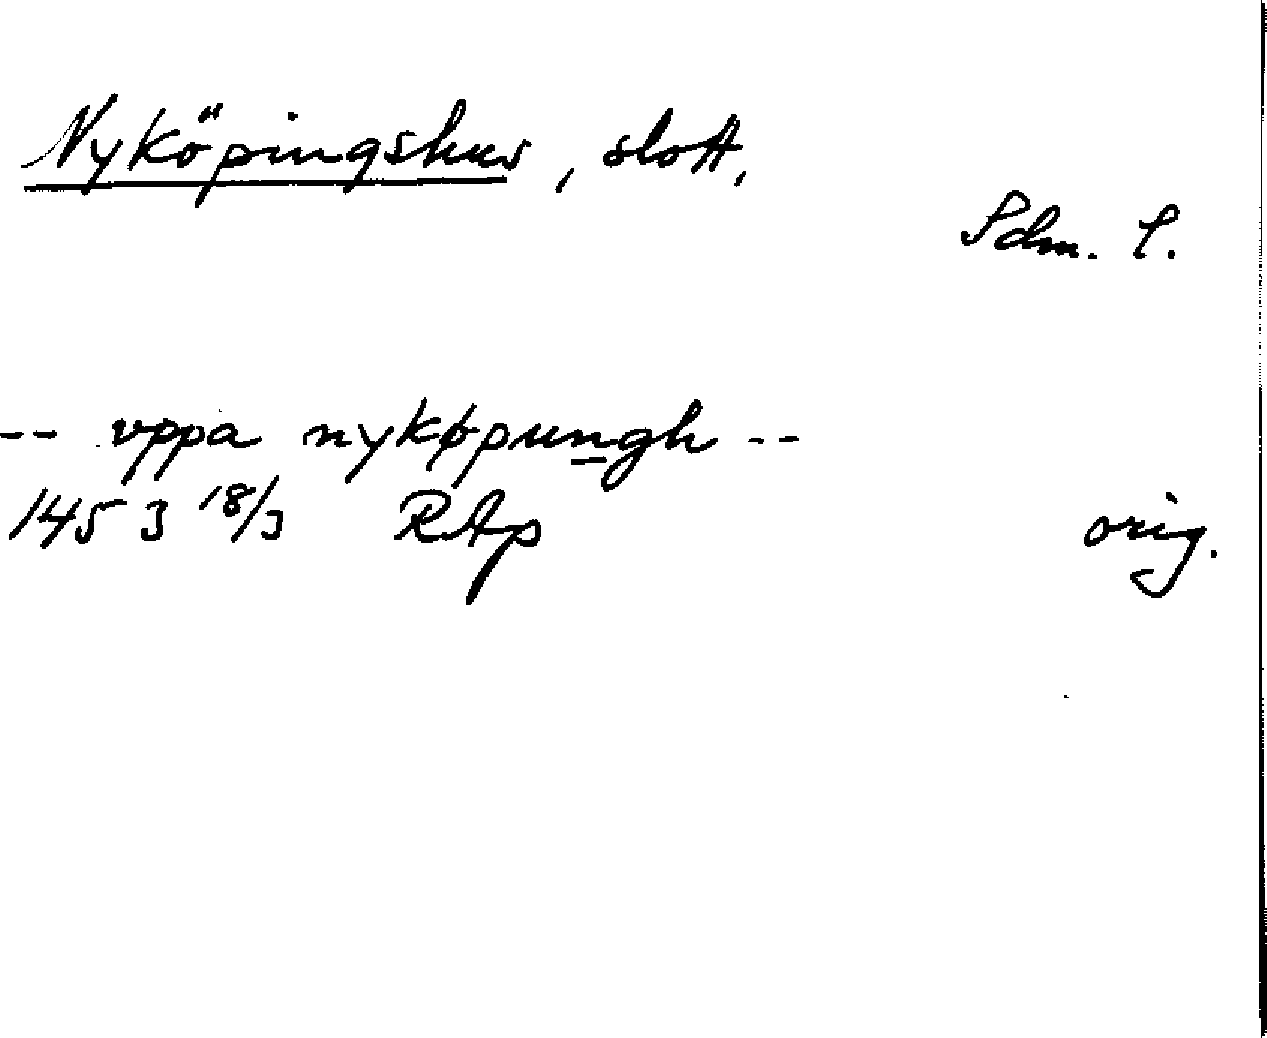 Nyköpingshus, slott,
Sdm. l.
-- vppa nykøpungh --
1453 18/3 RAp orig.